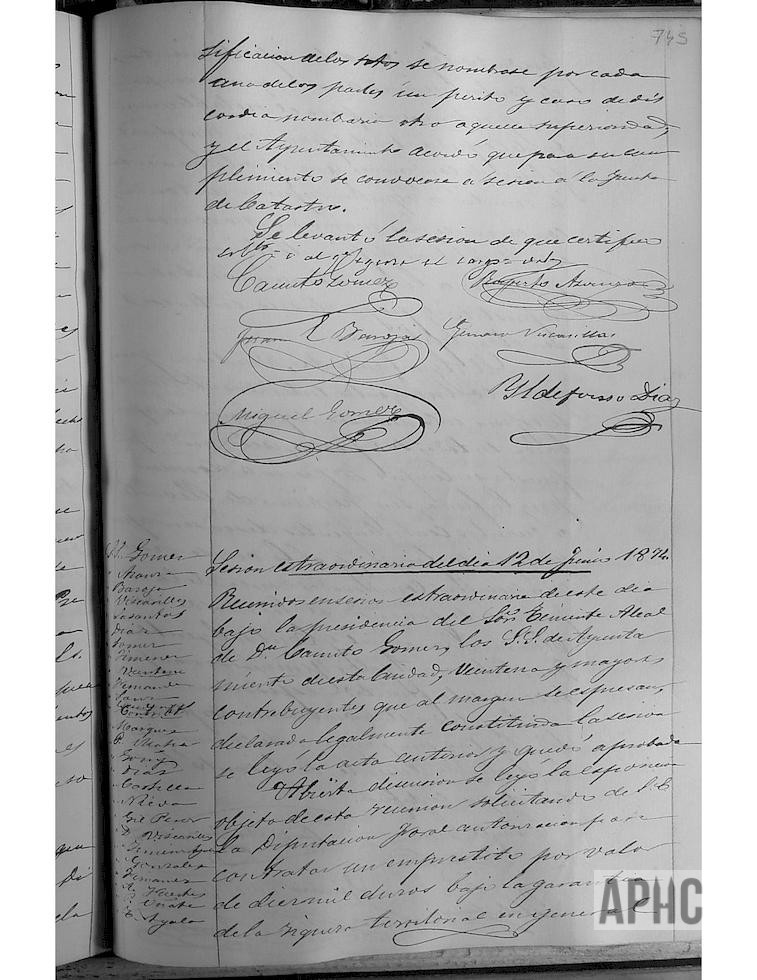 745
sificacion de los sotos se nombase por cada
una de los partes un perito y caso de dis
cordia nombaria otro aquella superioridad,
y el Ayuntamiento acordó que para su cum
plimiento se convocase a sesion á la Junta
de Catastro.
Se levantó la sesion de que certifico
Canuto Gomez
Roberto
Juan Baroja
Genaro Viscasillas
Miguel Gomez
Yldefonso Diaz
Sesion estraordinaria del dia 12 de Junio 1874.
Reunidos en sesion estraordinaria de este dia
bajo la presidencia del Sor. Teniente Alcal
de Dn. Canuto Gomez, los S.S. de Ayunta
miento de esta Ciudad, Veintena y mayores
contribuyentes que al margen se espresan,
declarada legalmente constituida la sesion
se leyó la acta anterior y quedó aprobada
Abierta discusion se leyó la esposicion
objeto de esta reunion solicitando de S.E.
la Diputacion foral autorizacion para
contratar un emprestito por valor
de diez mil duros bajo la garantia
de la riqueza territorial en general
Gomez
Baroja
Viscasillas
Diaz
Gomez
Gimenez
Veintena
Fernandez
Marques
Diaz
Castilla
Gil Perez
Viscasillas
Gonzalez
Oñate
Ayala
APHC